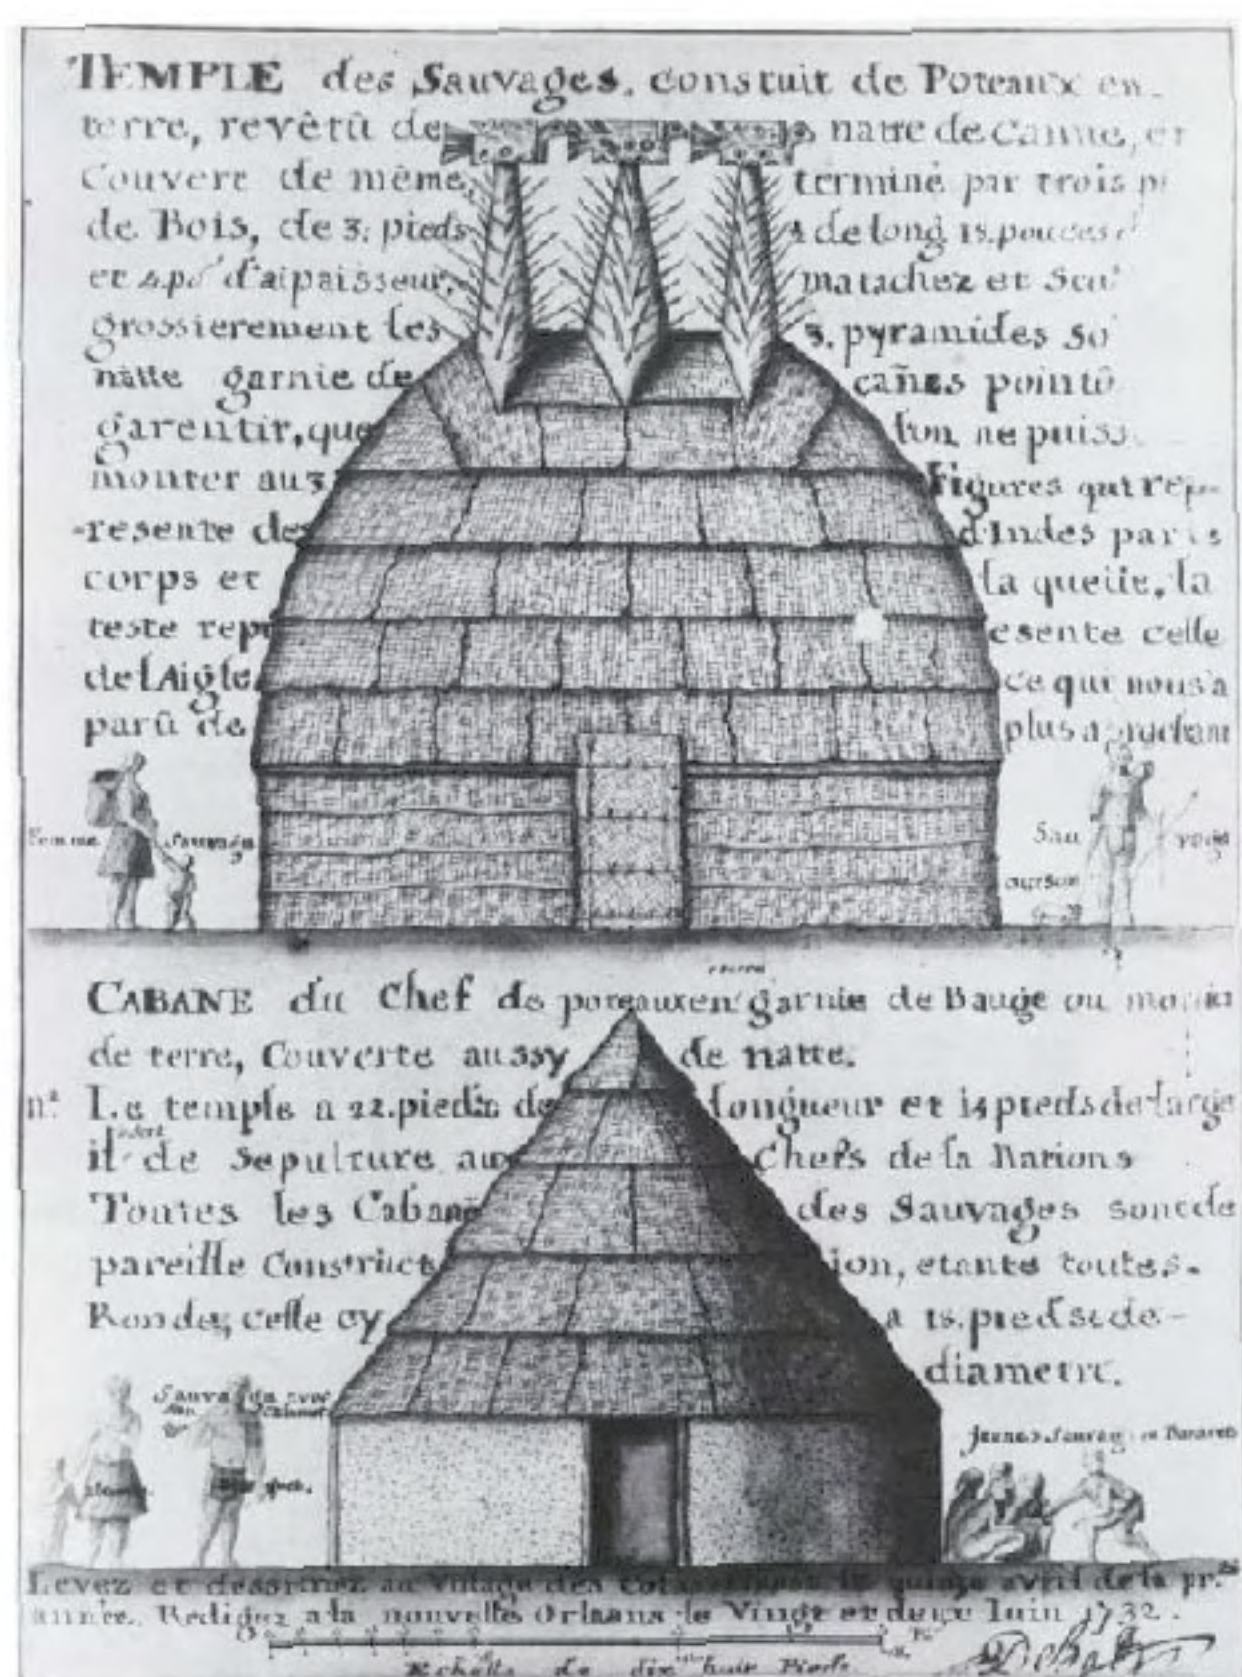 TEMPLE des Sauvages, constuit de Poteaux en
terre, revêtû de natte de Canne, et
Couvert de même, terminé par trois
de Bois, de 3. pieds de long 15. pouces
et 4. po d'aipaisseur, matachez et
grossierement les 3. pyramides
natte garnie de cañes
garentir, que lon ne
monter aux 3 figures qui rep-
-resente des d'Indes par le
corps et la queüe, la
teste represente celle
de l'Aigle, ce qui nous a
parû de plus aprochant
Femme Sauvage
Sau vage
ourson
CABANE du Chef de poteaux en garnie de Bauge ou
de terre, Couverte aussy de natte.
nᵃ Le temple a 22. pieds de longueur et 14 pieds de large
il sert de Sepulture aux Chefs de la Nations
Toutes les Cabane des Sauvages sont de
pareille Construction, etante toutes.
Ronde; celle cy a 18. pieds de-
diametre.
Sauvage avec
son Calumet
Jeunes Sauvag
Levez et dessinnez au Village des le quinze avril de la pr.
année. Redigez a la nouvelle Orleans le Vingt et deux Iuin 1732.
Echelle de dix huit Pieds
De Batz